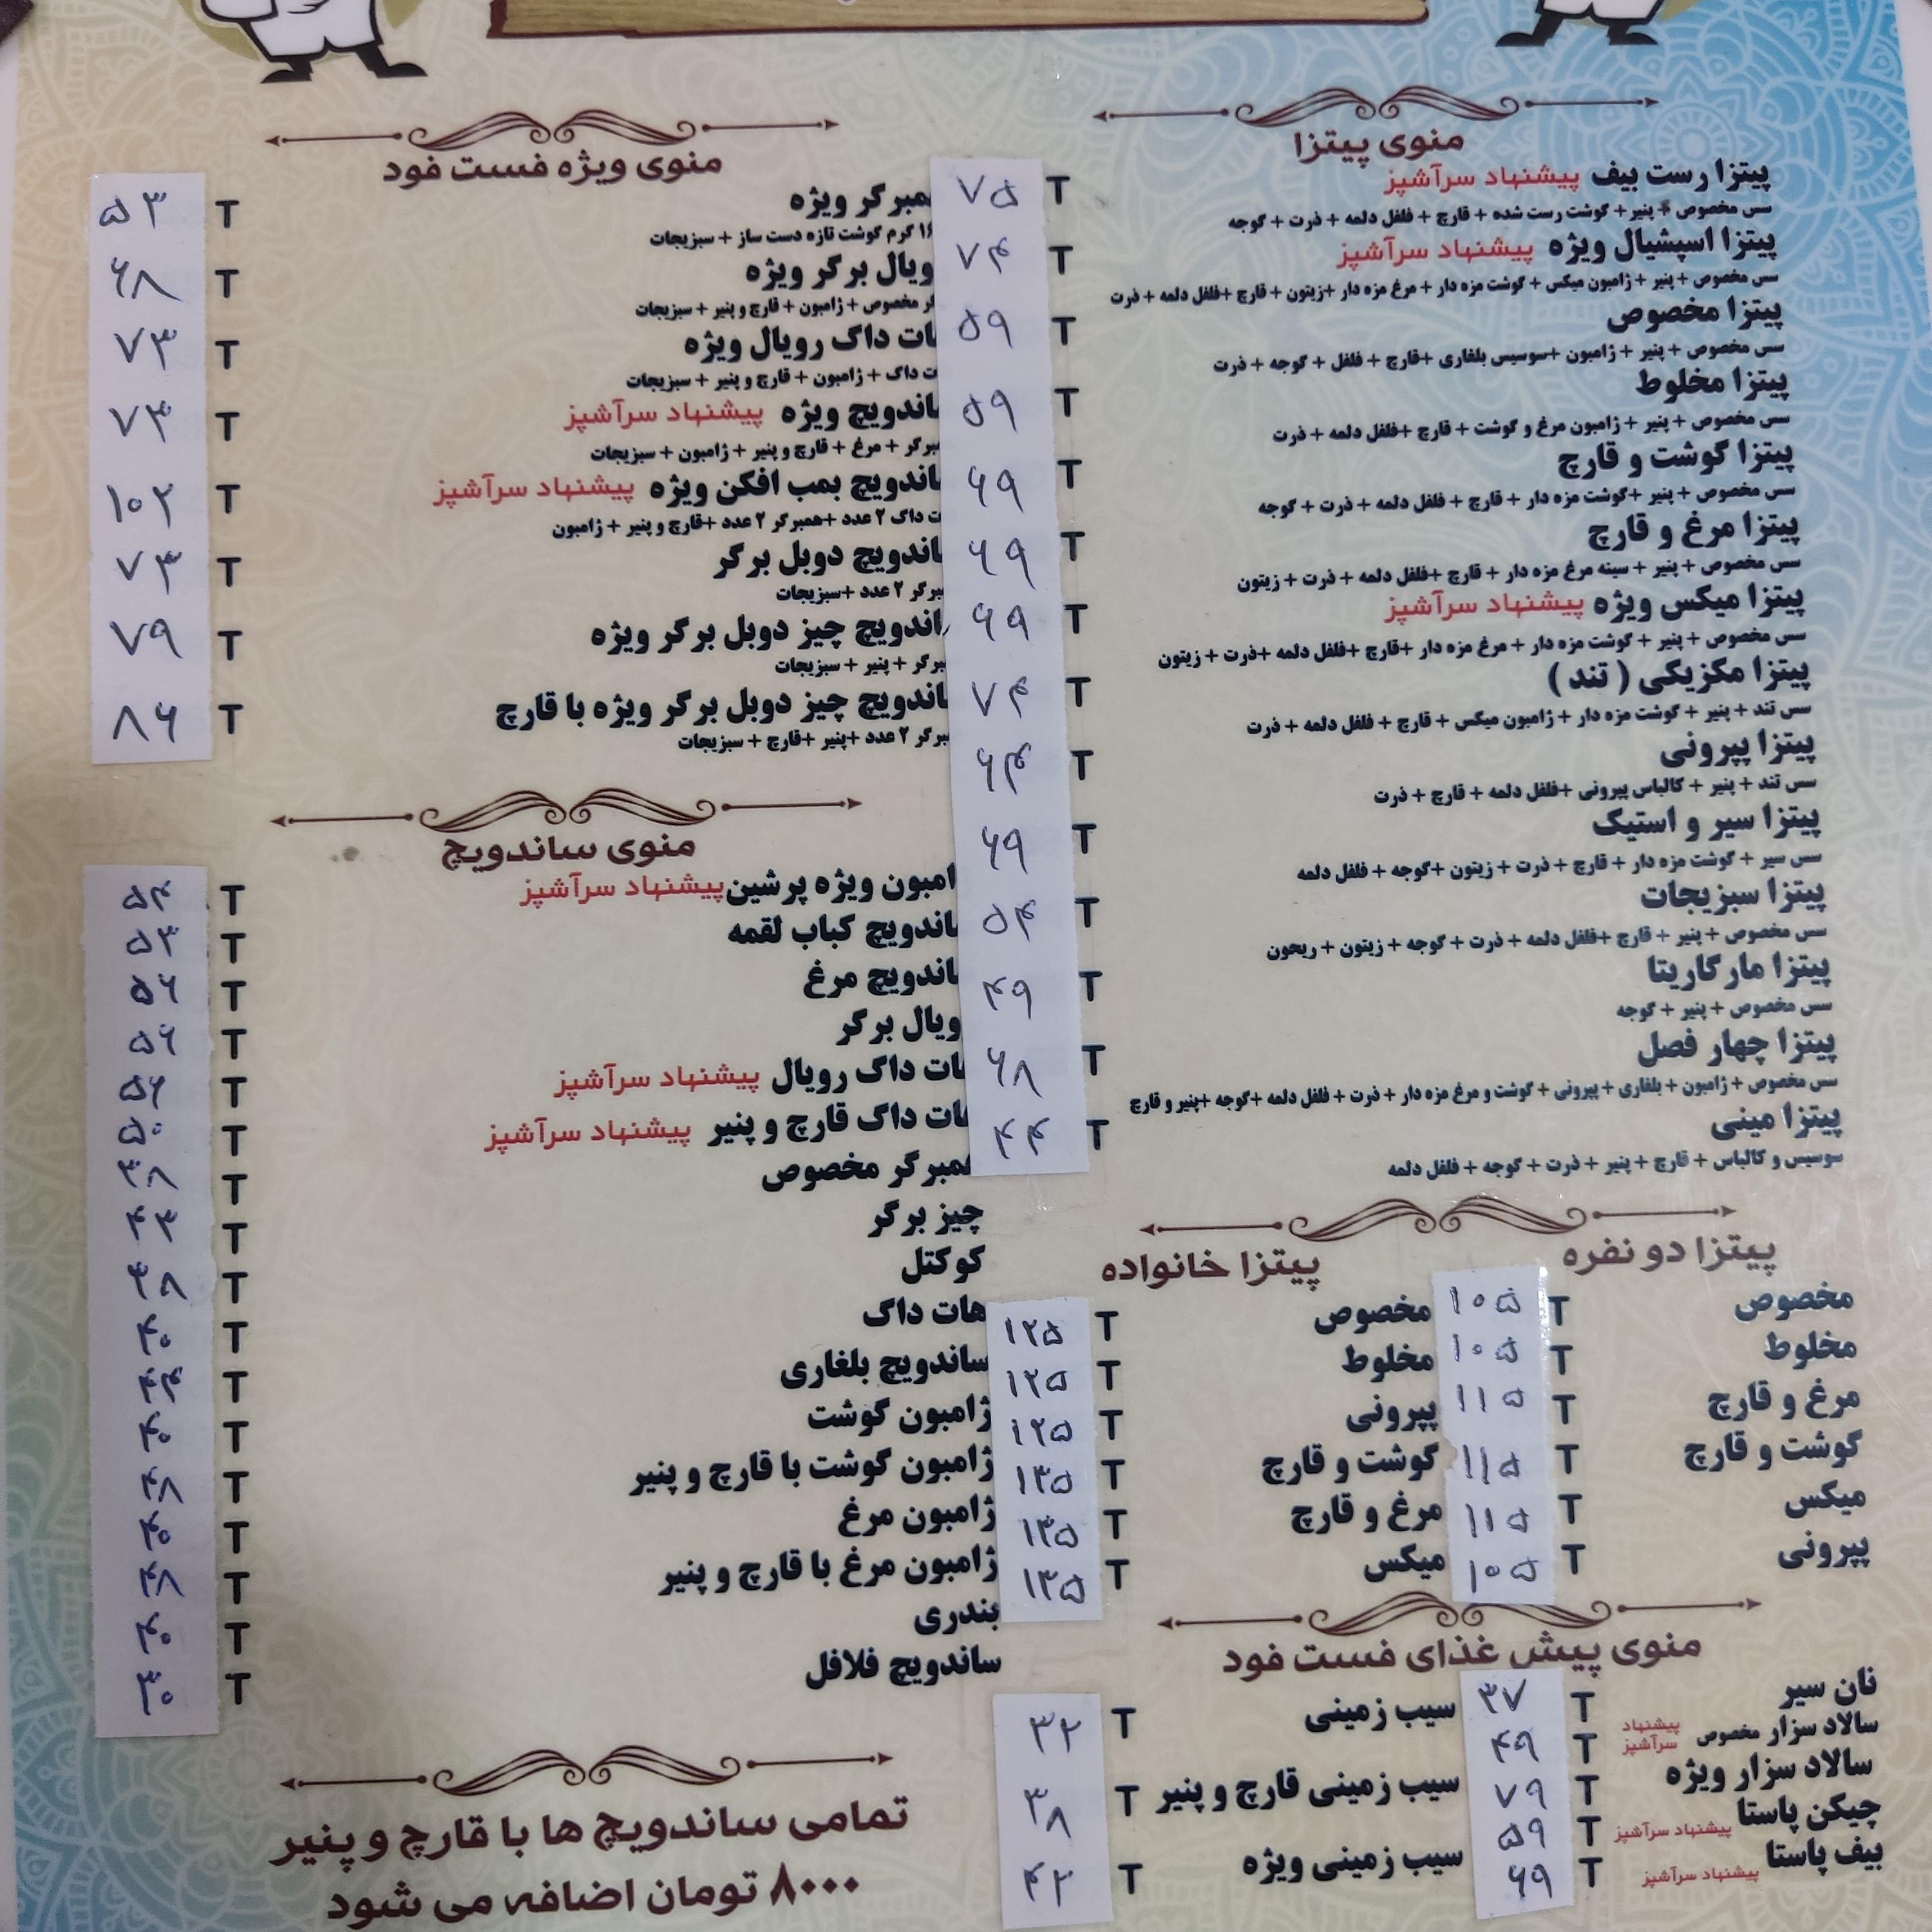 منوی پیتزا
پیتزا رست بیف پیشنهاد سرآشپز T ۷۵
سس مخصوص + پنیر + گوشت رست شده + قارچ + فلفل دلمه + ذرت + گوجه
پیتزا اسپشیال ویژه پیشنهاد سرآشپز T ۷۴
سس مخصوص + پنیر + ژامبون میکس + گوشت مزه دار + مرغ مزه دار +زیتون + قارچ +فلفل دلمه + ذرت
پیتزا مخصوص T ۵۹
سس مخصوص + پنیر + ژامبون +سوسیس بلغاری +قارچ + فلفل + گوجه + ذرت
پیتزا مخلوط T ۵۹
سس مخصوص + پنیر + ژامبون مرغ و گوشت + قارچ +فلفل دلمه + ذرت
پیتزا گوشت و قارچ T ۶۹
سس مخصوص + پنیر +گوشت مزه دار + قارچ + فلفل دلمه + ذرت + گوجه
پیتزا مرغ و قارچ T ۶۹
سس مخصوص + پنیر + سینه مرغ مزه دار + قارچ +فلفل دلمه + ذرت + زیتون
پیتزا میکس ویژه پیشنهاد سرآشپز T ۶۹
سس مخصوص + پنیر + گوشت مزه دار + مرغ مزه دار +قارچ +فلفل دلمه +ذرت + زیتون
پیتزا مکزیکی ( تند ) T ۷۴
سس تند + پنیر + گوشت مزه دار + ژامبون میکس + قارچ + فلفل دلمه + ذرت
پیتزا پپرونی T ۶۴
سس تند + پنیر + کالباس پپرونی +فلفل دلمه + قارچ + ذرت
پیتزا سیر و استیک T ۶۹
سس سیر + گوشت مزه دار + قارچ + ذرت + زیتون +گوجه + فلفل دلمه
پیتزا سبزیجات T ۵۴
سس مخصوص + پنیر + قارچ +فلفل دلمه + ذرت + گوجه + زیتون + ریحون
پیتزا مارگاریتا T ۴۹
سس مخصوص + پنیر + گوجه
پیتزا چهار فصل T ۶۸
سس مخصوص + ژامبون + بلغاری + پپرونی + گوشت و مرغ مزه دار + ذرت + فلفل دلمه +گوجه +پنیر و قارچ
پیتزا مینی T ۴۴
سوسیس و کالباس + قارچ + پنیر + ذرت + گوجه + فلفل دلمه
پیتزا دو نفره
مخصوص T ۱۰۵
مخلوط T ۱۰۵
مرغ و قارچ T ۱۱۵
گوشت و قارچ T ۱۱۵
میکس T ۱۱۵
پپرونی T ۱۰۵
پیتزا خانواده
مخصوص T ۱۲۵
مخلوط T ۱۲۵
پپرونی T ۱۲۵
گوشت و قارچ T ۱۳۵
مرغ و قارچ T ۱۳۵
میکس T ۱۳۵
منوی پیش غذای فست فود
نان سیر T ۳۷
سالاد سزار مخصوص پیشنهاد سرآشپز T ۴۹
سالاد سزار ویژه T ۷۹
چیکن پاستا پیشنهاد سرآشپز T ۵۹
بیف پاستا پیشنهاد سرآشپز T ۶۹
سیب زمینی T ۳۲
سیب زمینی قارچ و پنیر T ۳۸
سیب زمینی ویژه T ۴۲
منوی ویژه فست فود
مبرگر ویژه T ۵۳
گرم گوشت تازه دست ساز + سبزیجات
ویال برگر ویژه T ۶۸
مخصوص + ژامبون + قارچ و پنیر + سبزیجات
ات داگ رویال ویژه T ۷۳
ت داگ + ژامبون + قارچ و پنیر + سبزیجات
اندویچ ویژه پیشنهاد سرآشپز T ۷۳
برگر + مرغ + قارچ و پنیر + ژامبون + سبزیجات
اندویچ بمب افکن ویژه پیشنهاد سرآشپز T ۱۰۲
ت داگ ۲ عدد +همبرگر ۲ عدد +قارچ و پنیر + ژامبون
اندویچ دوبل برگر T ۷۳
برگر ۲ عدد +سبزیجات
اندویچ چیز دوبل برگر ویژه T ۷۹
برگر + پنیر + سبزیجات
اندویچ چیز دوبل برگر ویژه با قارچ T ۸۶
برگر ۲ عدد +پنیر +قارچ + سبزیجات
منوی ساندویچ
امبون ویژه پرشین پیشنهاد سرآشپز T ۵۴
اندویچ کباب لقمه T ۵۳
اندویچ مرغ T ۵۶
ویال برگر T ۵۶
ات داگ رویال پیشنهاد سرآشپز T ۵۶
ات داگ قارچ و پنیر پیشنهاد سرآشپز T ۵۰
همبرگر مخصوص T ۳۸
چیز برگر T ۴۳
کوکتل T ۳۸
هات داگ T ۴۰
ساندویچ بلغاری T ۴۴
ژامبون گوشت T ۴۰
ژامبون گوشت با قارچ و پنیر T ۴۸
ژامبون مرغ T ۴۰
ژامبون مرغ با قارچ و پنیر T ۴۸
بندری T ۴۰
ساندویچ فلافل T ۳۰
تمامی ساندویچ ها با قارچ و پنیر
۸۰۰۰ تومان اضافه می شود